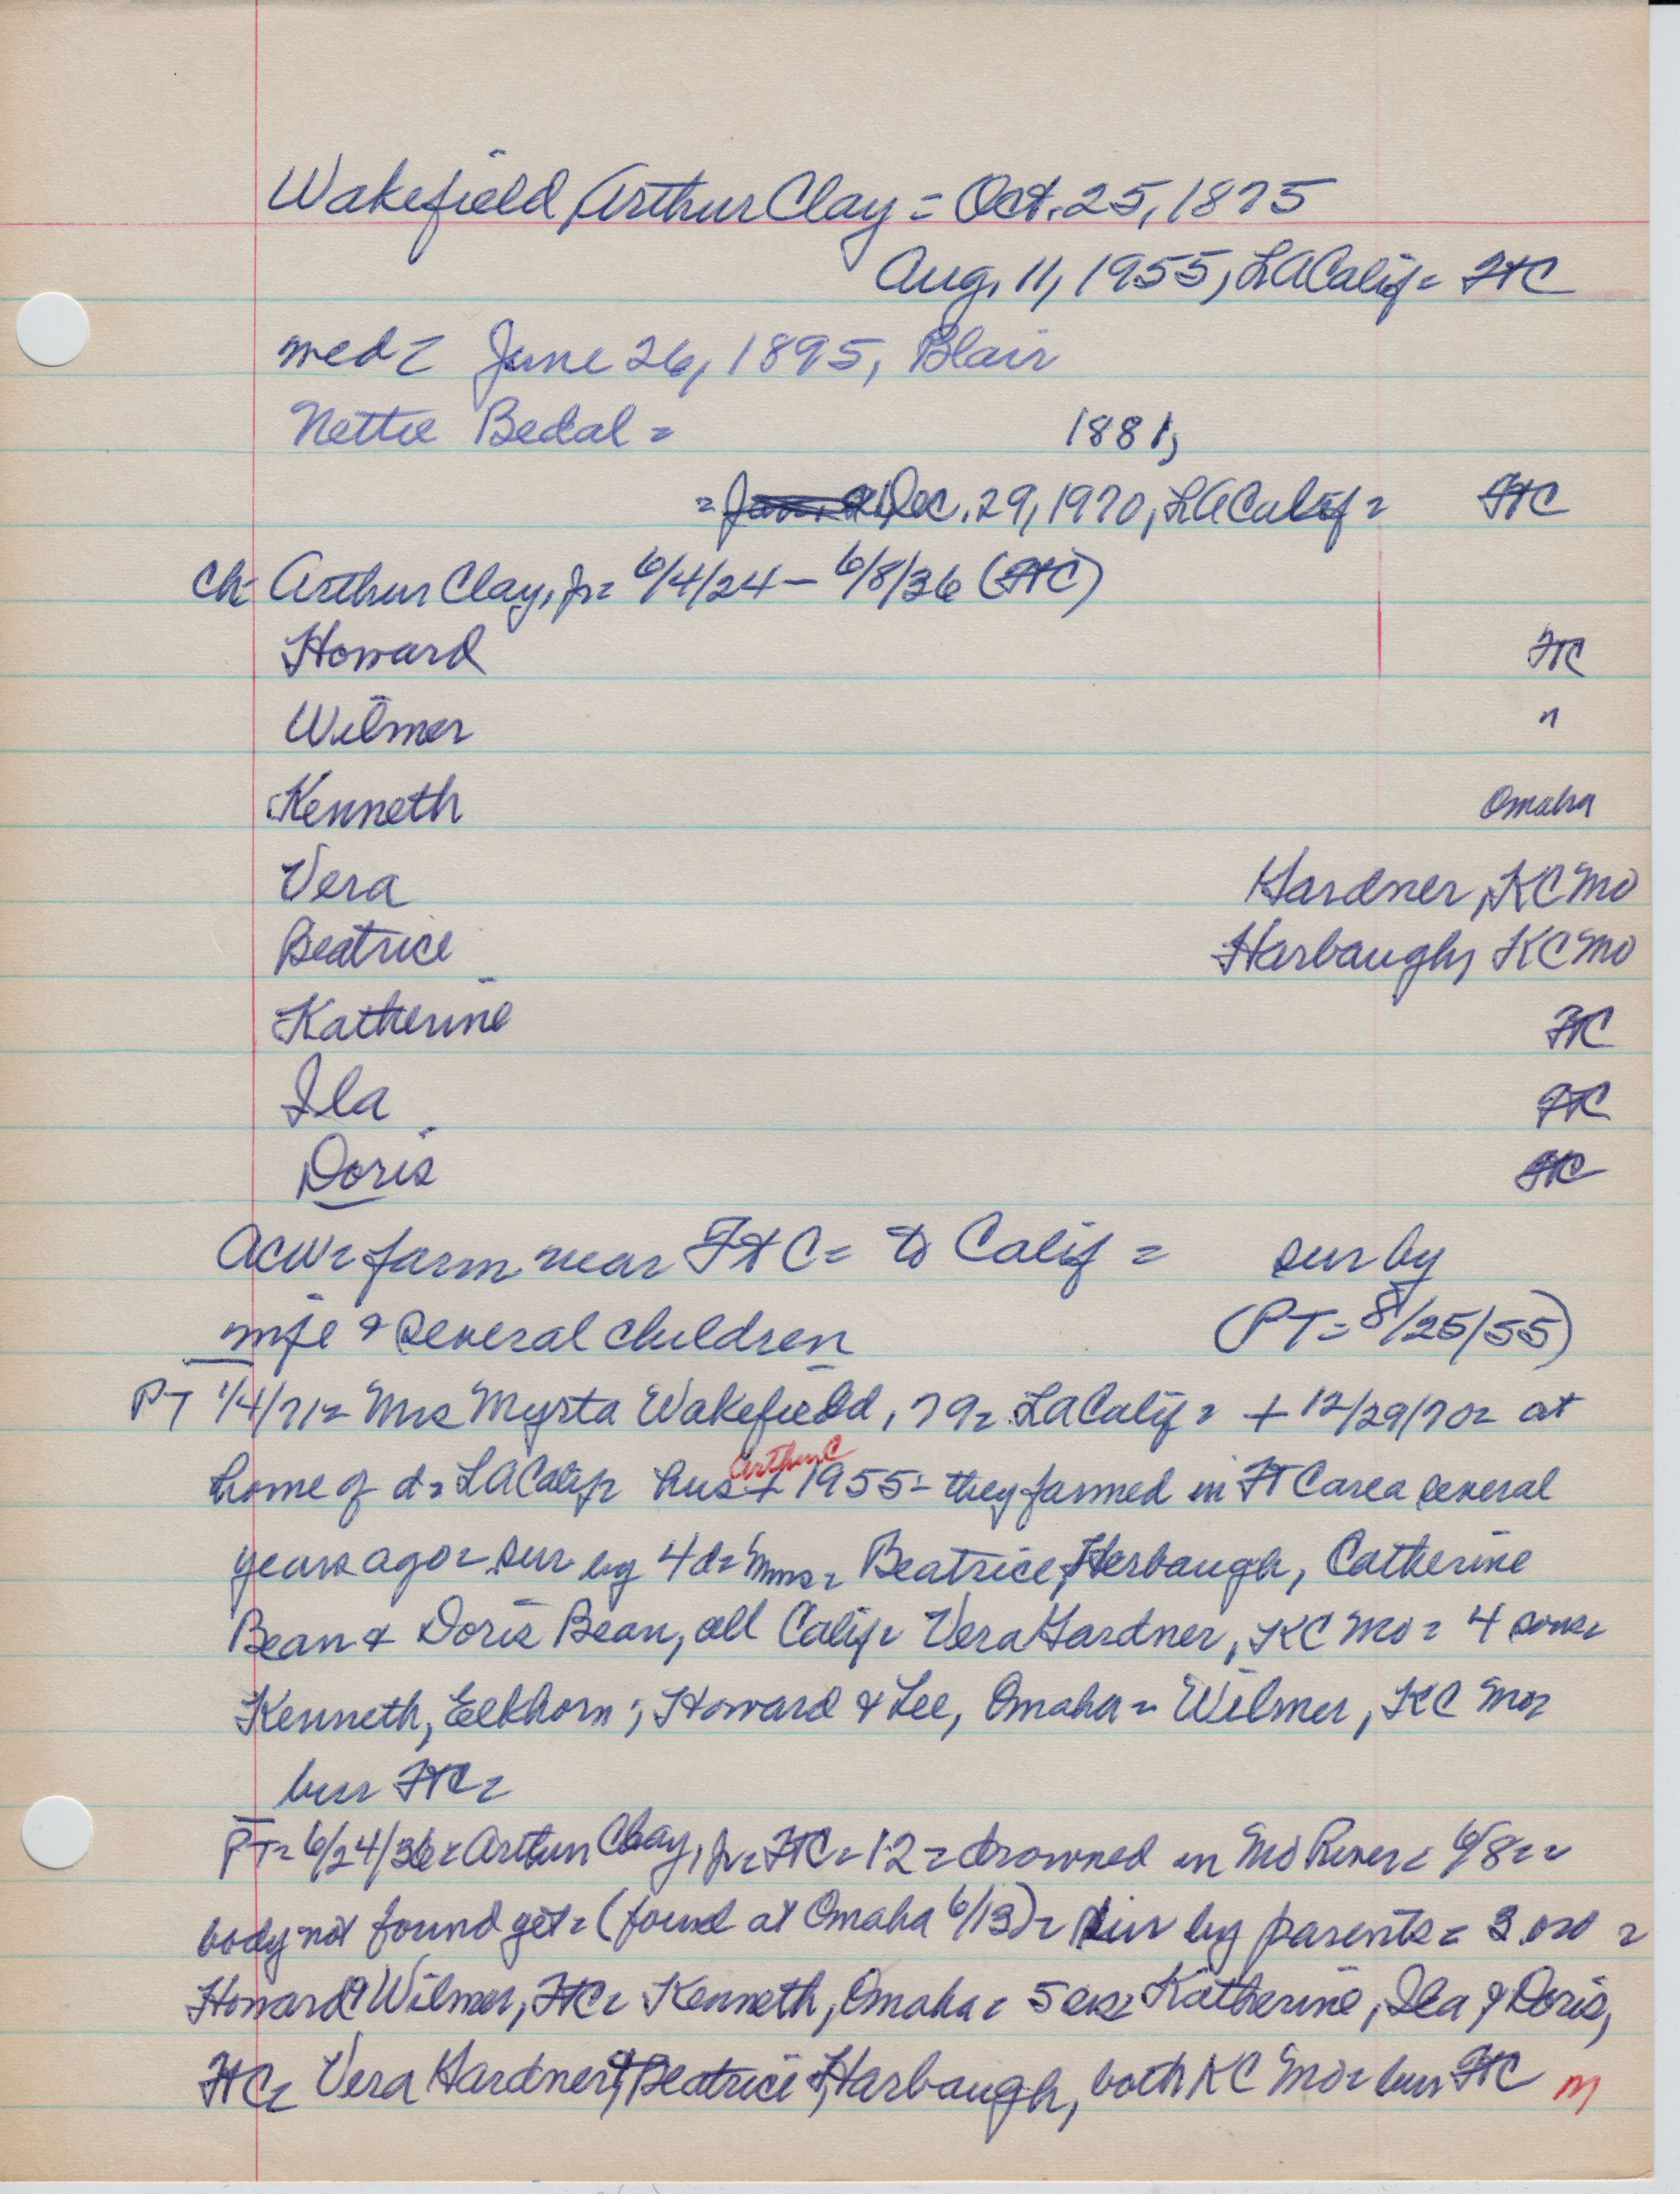 Wakefield, Arthur Clay = Oct. 25, 1875
Aug. 11, 1955, LA Calif = FtC
med = June 26, 1895, Blair
Nettie Bedal = 1881,
= Dec. 29, 1970, LA Calif = FtC
ch- Arthur Clay, Jr = 6/4/24 – 6/8/36 (FtC)
Howard FtC
Wilmer "
Kenneth Omaha
Vera Hardner, KC Mo
Beatrice Harbaugh, KC Mo
Katherine FtC
Ila FtC
Doris FtC
ACW = farm near Ft C = to Calif = sur by
wife & several children (PT = 8/25/55)
PT 1/4/71 = Mrs Myrta Wakefield, 79 = LA Calif = + 12/29/70 = at
home of d = LA Calif = hus Arthur C + 1955 = they farmed in FtC area several
years ago = sur by 4 d = Mmes = Beatrice Herbaugh, Catherine
Bean & Doris Bean, all Calif = Vera Hardner, KC Mo = 4 sons =
Kenneth, Elkhorn; Howard & Lee, Omaha = Wilmer, KC Mo =
bur FtC =
PT = 6/24/36 = Arthur Clay, Jr = FtC = 12 = drowned in Mo River = 6/8 = =
body not found yet = (found at Omaha 6/13) = sur by parents = 3 bro =
Howard & Wilmer, FtC = Kenneth, Omaha = 5 sis = Katherine, Ila & Doris,
FtC = Vera Hardner & Beatrice Harbaugh, both KC Mo = bur FtC m